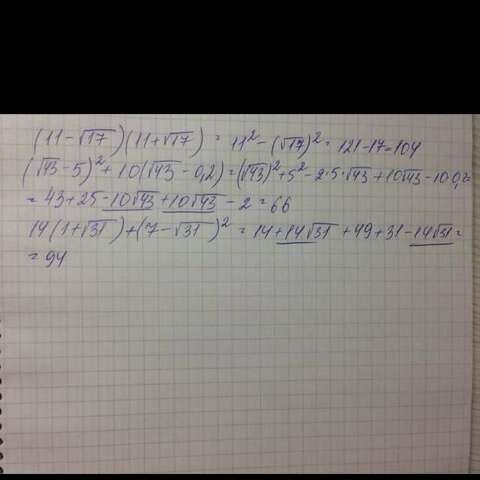 (11-√17)(11+√17) = 11² - (√17)² = 121-17=104
(√43-5)² + 10(√43-0,2) = (√43)²+5²-2·5·√43+10√43-10·0,2=
= 43+25-10√43+10√43-2=66
14(1+√31)+(7-√31)² = 14+14√31+49+31-14√31=
= 94